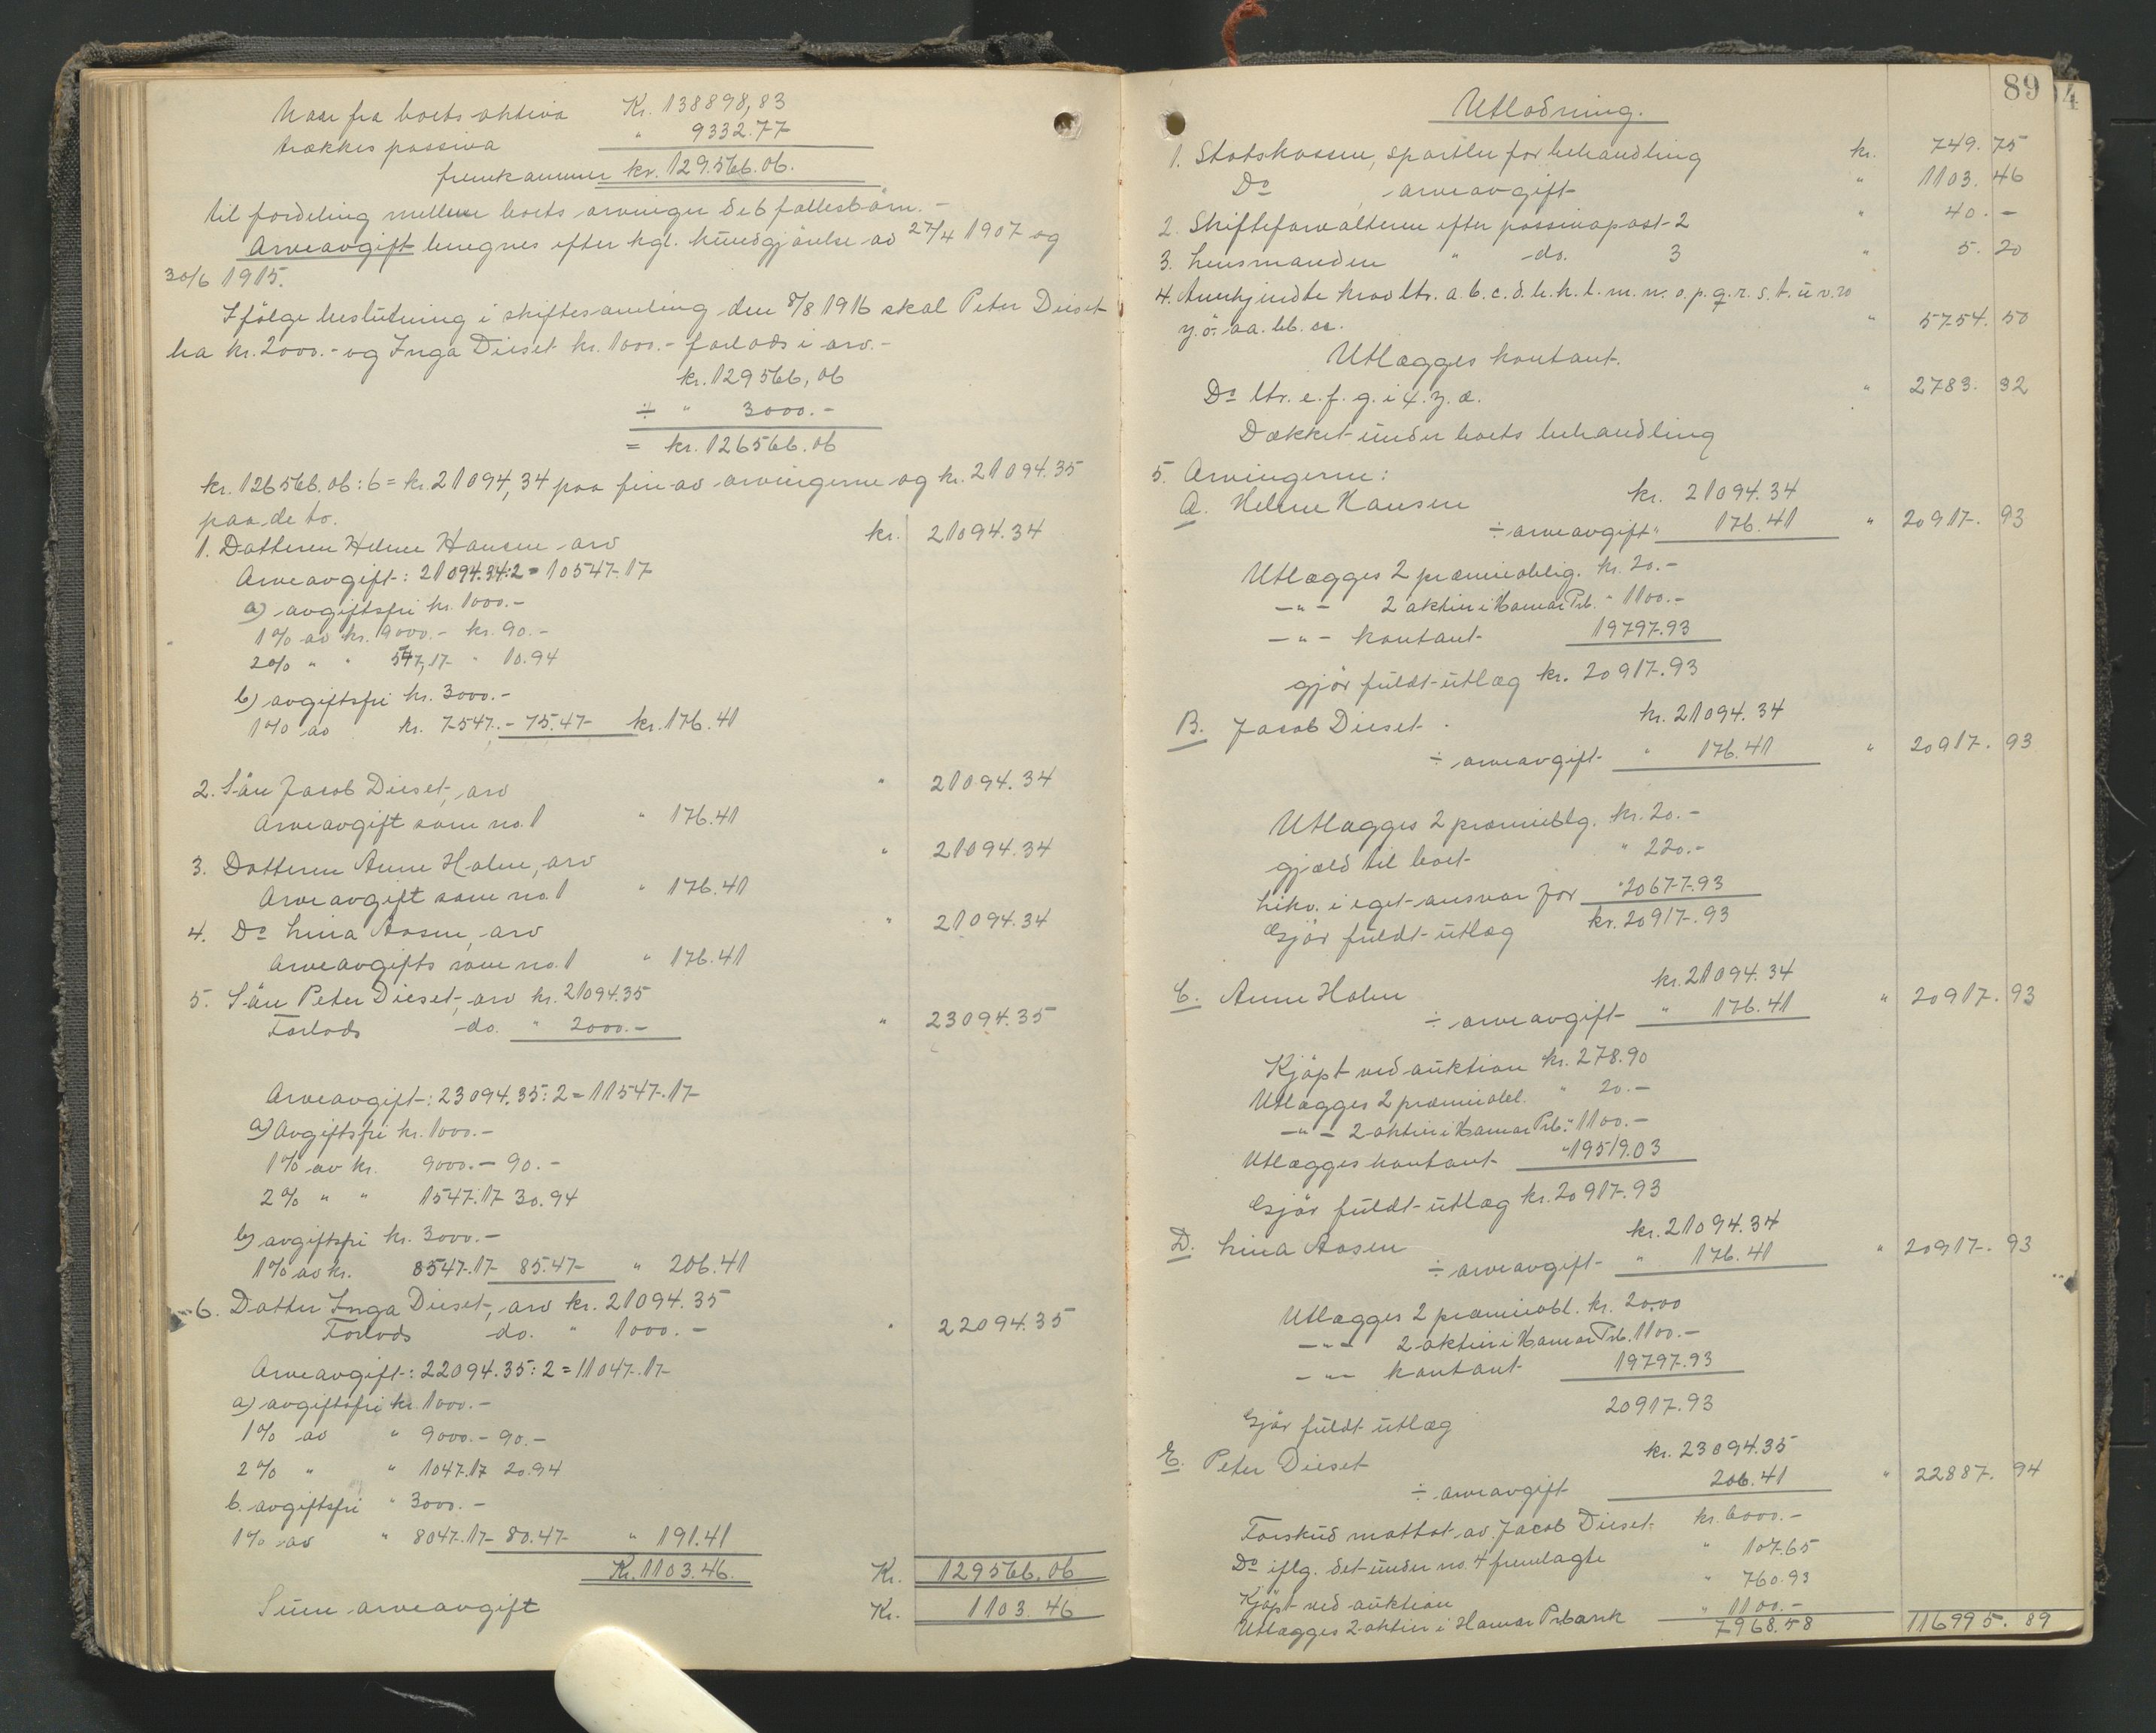 Naar fra boets aktiva Kr. 138898,83
trækkes passiva " 9332.77
fremkommer kr. 129.566.06.
til fordeling mellem boets arvinger de 6 fællesbørn. -
Arveavgift beregnes efter kgl. kundgjørelse av 27/4 1907 og
30/6 1915.
Ifölge beslutning i skiftesamling den 8/8 1916 skal Peter Dieset
ha kr. 2000.- og Inga Dieset kr. 1000.- forlods i arv. -
kr. 129566,06
÷ " 3000.-
= kr. 126566.06
kr. 126566.06 : 6 = kr. 21094,34 paa fire av arvingerne og kr. 21094.35
paa de to.
1. Datteren Helene Hansen arv kr. 21094.34
Arveavgift: 21094.34:2 = 10547.17
a) avgiftsfri kr. 1000.-
1% av kr. 9000.- kr. 90.-
2% " " 547,17 " 10.94
b) avgiftsfri kr. 3000.-
1% av kr. 7547.- 75.47 kr. 176.41
2. Sön Jacob Dieset, arv " 21094.34
Arveavgift som no. 1 " 176.41
3. Datteren Anne Holm, arv " 21094.34
Arveavgift som no. 1 " 176.41
4. Do Lina Aasen, arv " 21094.34
Arveavgifts som no. 1 " 176.41
5. Sön Peter Dieset, arv kr. 21094.35
Forlods do. " 2000.- " 23094.35
Arveavgift: 23094.35:2 = 11547.17
a) Avgiftsfri kr. 1000.-
1% av kr. 9000.- 90.-
2% " " 1547.17 30.94
b) avgiftsfri kr. 3000.-
1% av kr. 8547.17 85.47 " 206.41
6. Datter Inga Dieset, arv kr. 21094.35
Forlods do. " 1000.- " 22094.35
Arveavgift: 22094.35:2 = 11047.17
a) avgiftsfri kr. 1000.-
1% av " 9000.- 90.-
2% " " 1047.17 20.94
b. avgiftsfri " 3000.-
1% av " 8047.17 80.47 " 191.41
Kr. 1103.46. Kr. 129566.06
Sum arveavgift Kr. 1103.46
89
Utlodning.
1. Statskassen, sportler for behandling kr. 749.75
Do , arveavgift " 1103.46
2. Skifteforvalteren efter passivapost 2 " 40.-
3. Lensmanden " do. 3 " 5.20
4. Anerkjendte krav ltr. a. b. c. d. h. k. l. m. n. o. p. q. r. s. t. u v. w
y. ö. aa. bb. cc. " 5754.50
Utlægges kontant.
Do ltr. e. f. g. i 4. z. æ. " 2783.32
Dækket under boets behandling
5. Arvingerne:
A. Helene Hansen kr. 21094.34
÷ arveavgift " 176.41 " 20917.93
Utlægges 2 præmieoblig. kr. 20.-
-"- 2 aktier i Hamar Prb. " 1100.-
-"- kontant 19797.93
gjør fuldt utlæg kr. 20917.93
B. Jacob Dieset kr. 21094.34
÷ arveavgift " 176.41 " 20917.93
Utlægges 2 præmieoblg. kr. 20.-
gjæld til boet " 220.-
Likv. i eget ansvar for " 20677.93
Gjør fuldt utlæg kr. 20917.93
C. Anne Holm kr. 21094.34
÷ arveavgift " 176.41 " 20917.93
Kjöpt ved auktion kr. 278.90
Utlægges 2 præmieobl. " 20.-
-"- 2 aktier i Hamar Prb. " 1100.-
Utlægges kontant " 19519.03
Gjør fuldt utlæg kr. 20917.93
D. Lina Aasen kr. 21094.34
÷ arveavgift " 176.41 " 20917.93
Utlægges 2 præmieobl. kr. 20.00
-"- 2 aktier i Hamar Prb. 1100.-
-"- kontant 19797.93
Gjør fuldt utlæg 20917.93
E. Peter Dieset kr. 23094.35
÷ arveavgift 206.41 " 22887.94
Forskud mottat av Jacob Dieset kr. 6000.-
Do iflg. det under no. 4 fremlagte " 107.65
Kjøpt ved auktion " 760.93
Utlægges 2 aktier i Hamar Prbank " 1100.-
7968.58 116995.89